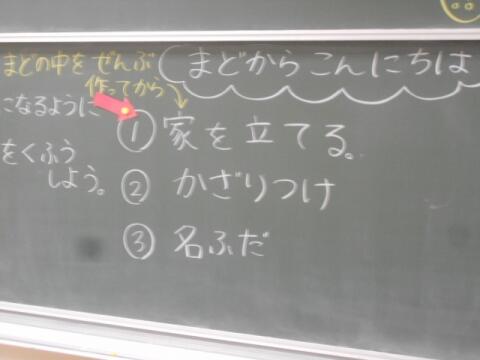 まどからこんにちは
まどの中をぜんぶ
作ってから
①家を立てる。
②かざりつけ
③名ふだ
になるように
をくふう
しよう。